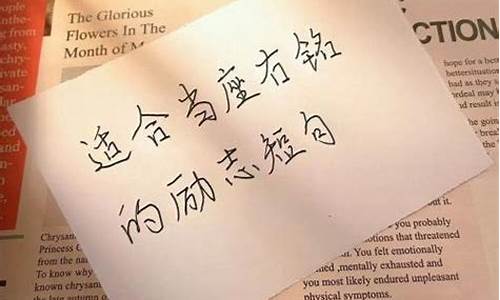 The Glorious
Flowers In The
Month of
CTION
适合当座右铭
的励志短句
hope for a
had as they
ordeal may
d results
the
Chrysan
Princess
from the
To know why
known chrysan
the late autumn
out it.
you probably
that threatened
You felt emotionally
mentally exhausted and
you most likely endured unpleasant
physical symptoms.